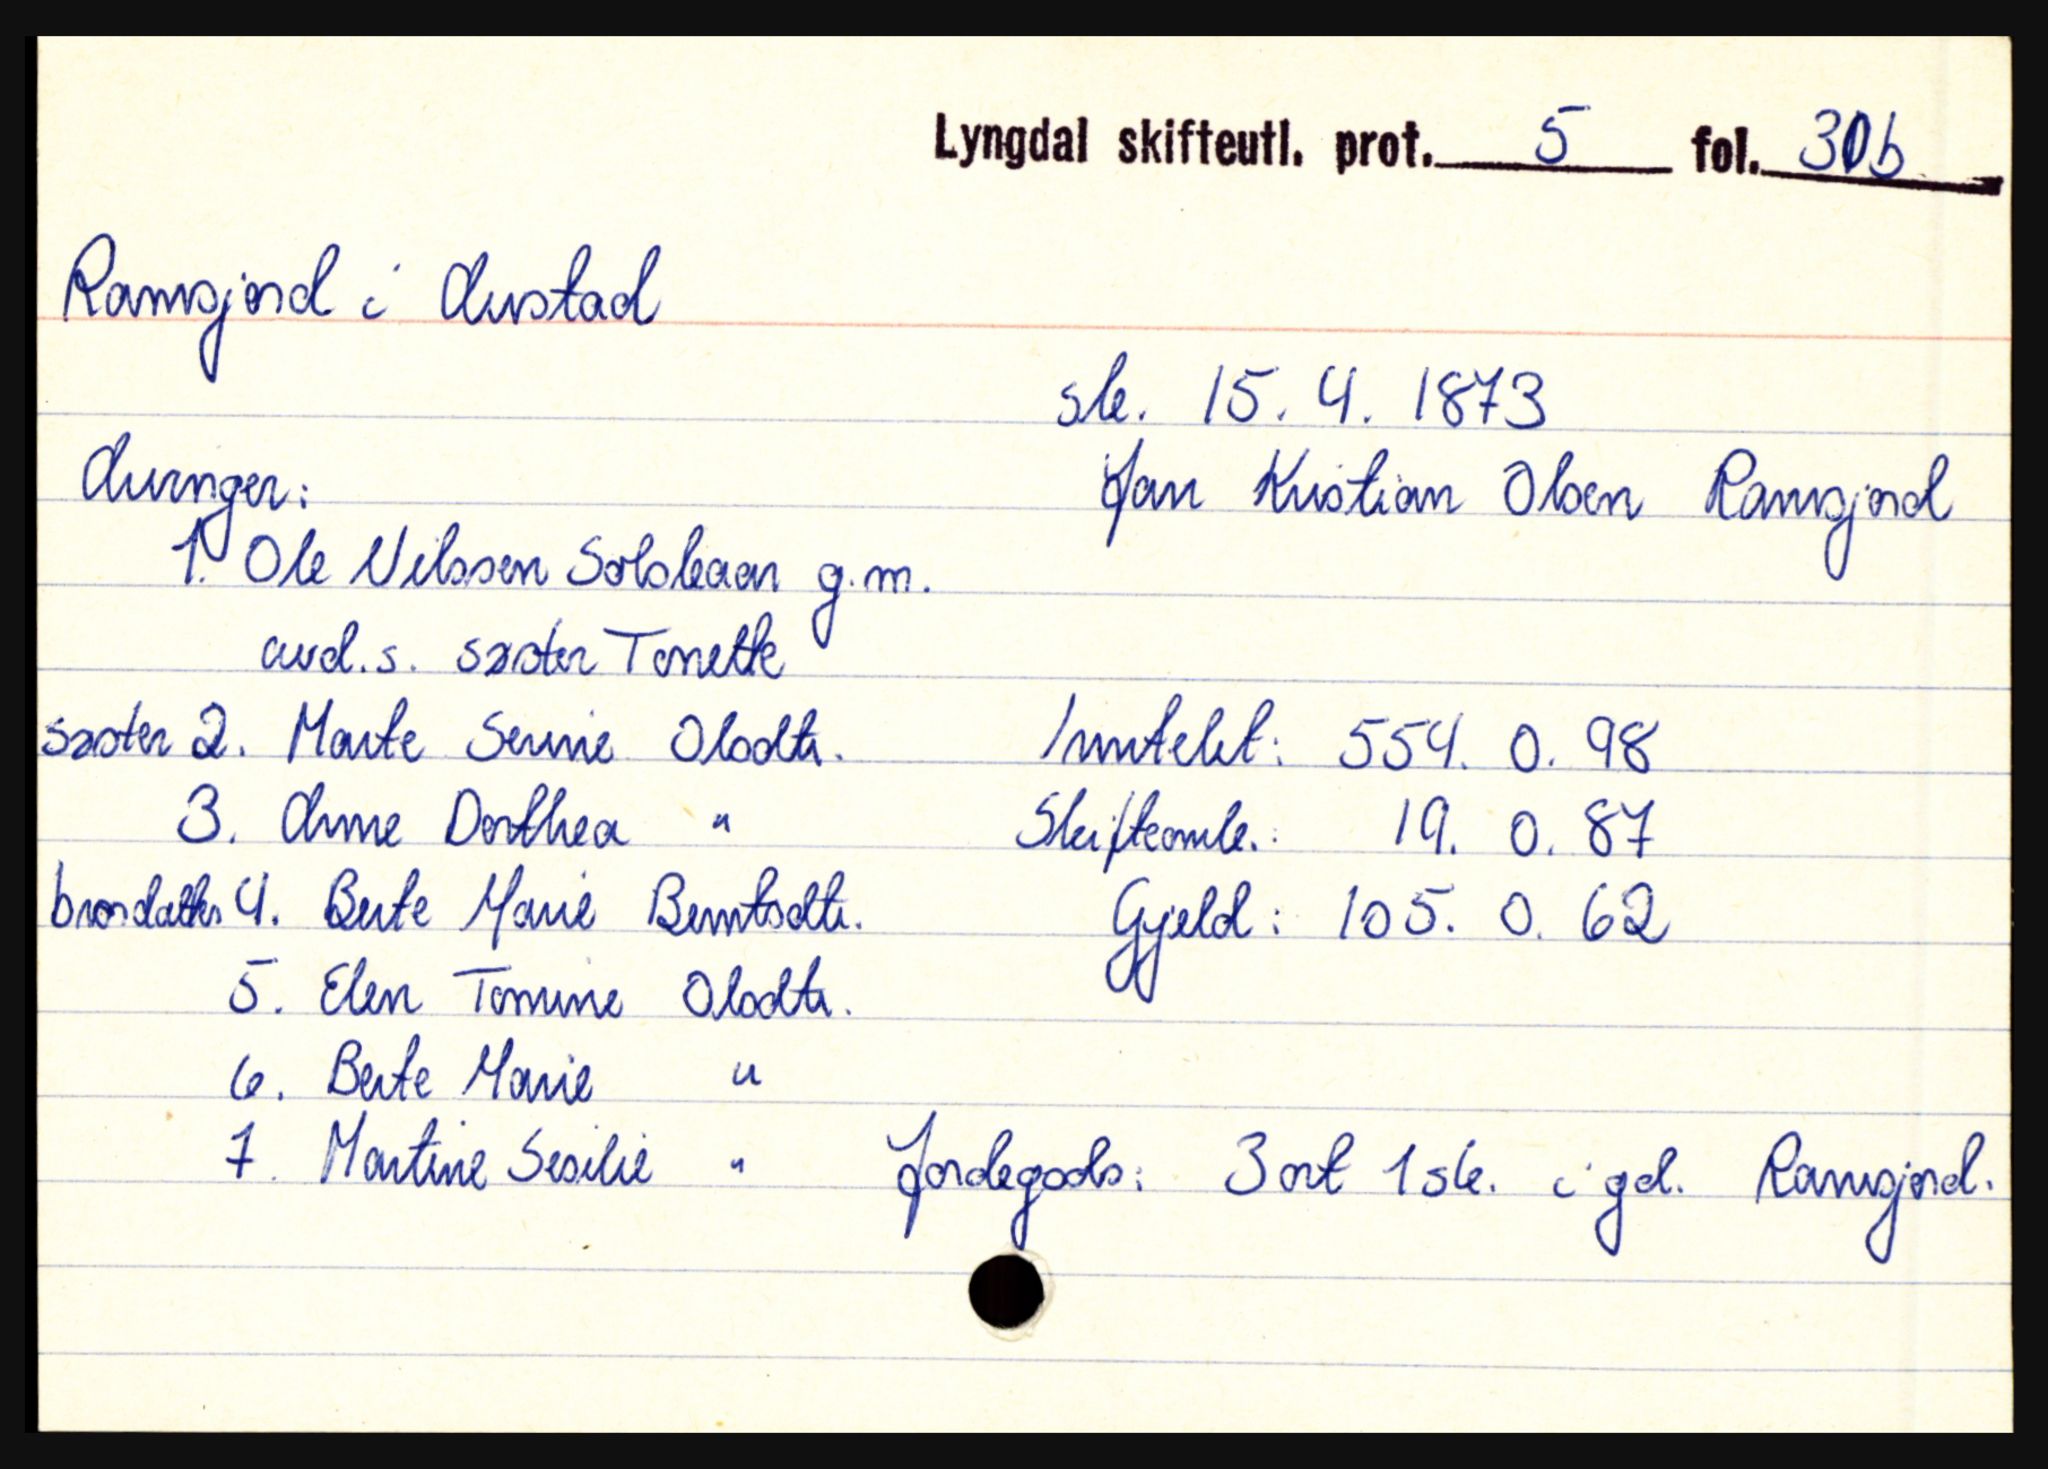 Lyngdal skifteutl. prot. 5 fol. 30b
Ramsjord i Austad
sk. 15. 4. 1873
Jan Kristian Olsen Ramsjord
Arvinger:
1. Ole Nilssen Solskaar g.m.
avd.s. søster Tonette
søster 2. Marte Serine Olsdtr.
3. Anne Dorthea "
brordatter 4. Berte Marie Berntsdtr.
5. Elen Tomine Olsdtr.
6. Berte Marie "
7. Martine Sesilie "
Inntekt: 554. 0. 98
Skifteomk.: 19. 0. 87
Gjeld: 105. 0. 62
Jordegods: 3 ort 1 sk. i gd. Ramsjord.